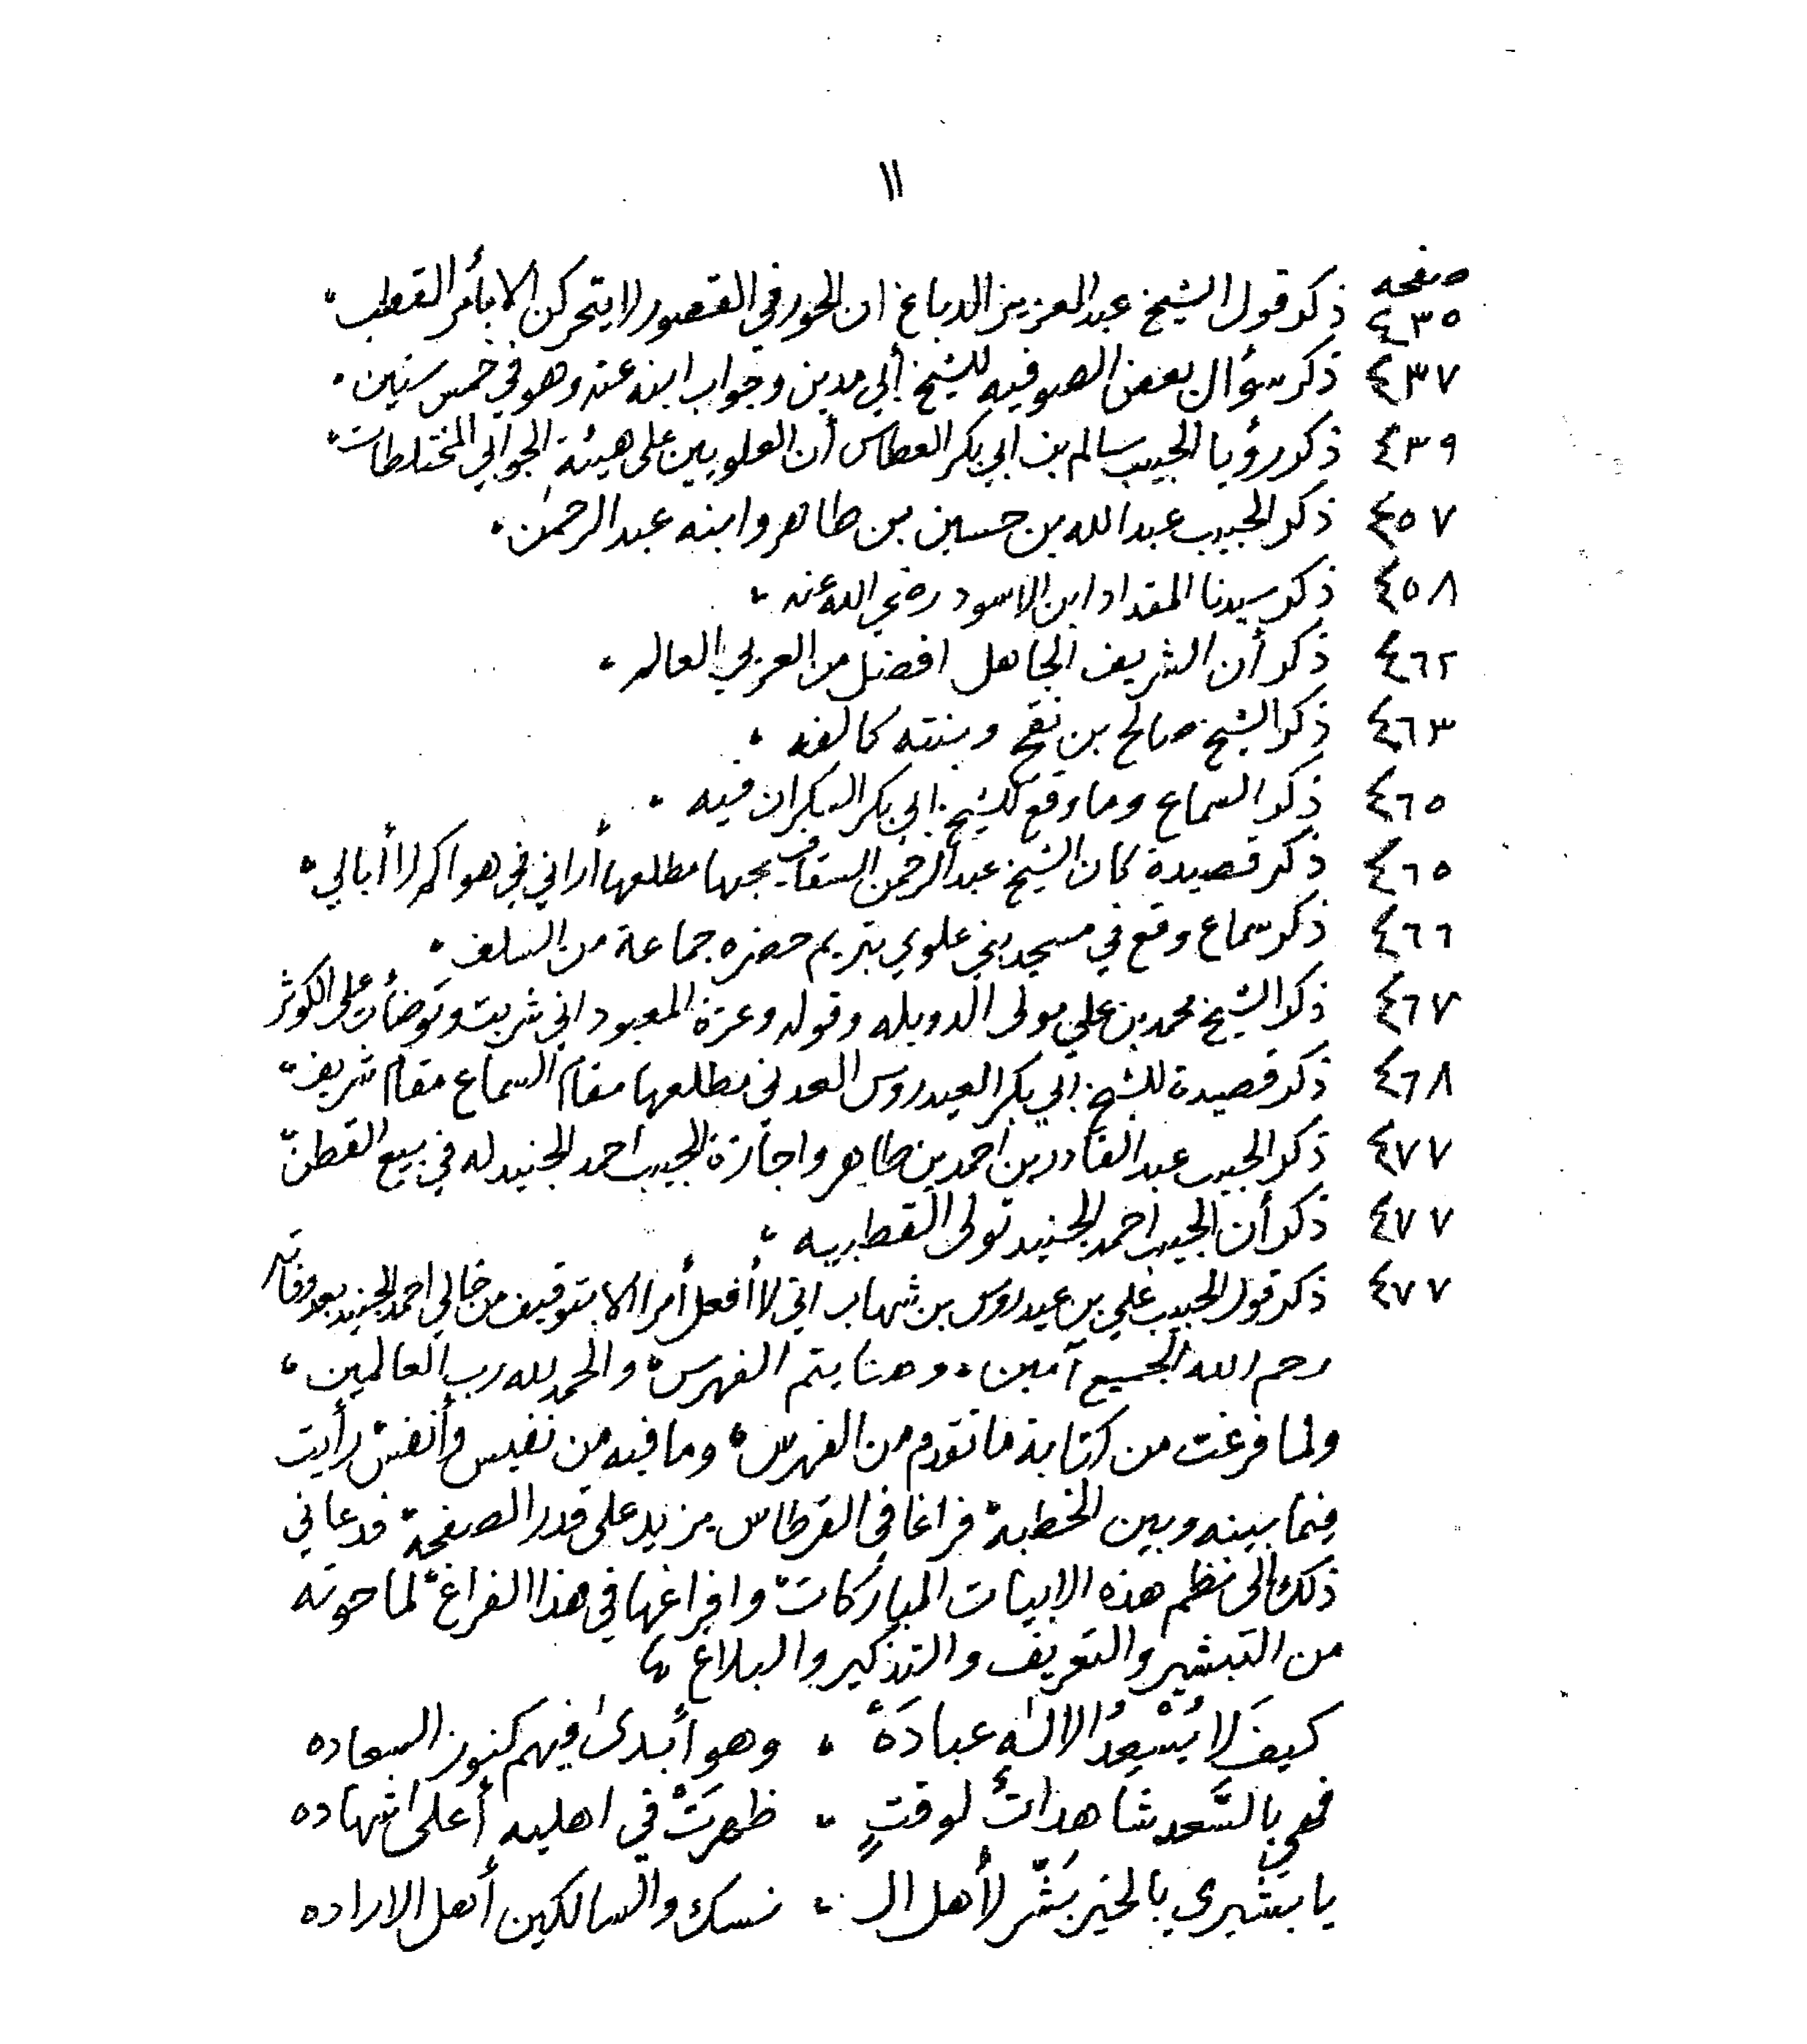 ١١
صفحه
٤٣٥ ذكر قول الشيخ عبد العزيز الدباغ ان الحور في القصور لا يتحركن الا بأمر القطب،
٤٣٧ ذكر سؤال بعض الصوفيه للشيخ أبي مدين وجواب ابنه عنه وهو في خمس سنين.
٤٣٩ ذكر رؤيا الحبيب سالم بن ابي بكر العطاس أن العلويين على هيئة الجوابي المختلطات،
٤٥٧ ذكر الحبيب عبد الله بن حسين بن طاهر وابنه عبد الرحمن.
٤٥٨ ذكر سيدنا المقداد ابن الاسود رضي الله عنه،
٤٦٢ ذكر أن الشريف الجاهل افضل من العربي العالم،
٤٦٣ ذكر الشيخ صالح بن نقح وبنته
٤٦٥ ذكر السماع وما وقع للشيخ ابي بكر السكران فيه.
٤٦٥ ذكر قصيدة كان الشيخ عبد الرحمن السقاف يحبها مطلعها أراني في هواكم لا أبالي،
٤٦٦ ذكر سماع وقع في مسجد بني علوي بتريم حضره جماعة من السلف،
٤٦٧ ذكر الشيخ محمد بن علي مولى الدويله وقوله وعزة المعبود اني شربت وتوضأت على الكوثر
٤٦٨ ذكر قصيدة للشيخ ابي بكر العيدروس العدني مطلعها مقام السماع مقام شريف،
٤٧٧ ذكر الحبيب عبد القادر بن احمد بن طاهر واجازة الحبيب احمد الجنيد له في بيع القطن،
٤٧٧ ذكر أن الحبيب احمد الجنيد تولى القطبيه،
٤٧٧ ذكر قول الحبيب علي بن عيدروس بن شهاب اني لا أفعل أمرا الا بتوقيف من خالي احمد الجنيد بعد وفاته
رحم الله الجميع آمين، وهنا يتم الفهرس، والحمد لله رب العالمين،
ولما فرغت من كتابة ما تقدم من الفهرس، وما فيه من نفيس وأنفس، رأيت
فيما بينه وبين الخطبة، فراغا في القرطاس يزيد على قدر الصفحة، فدعاني
ذلك الى نظم هذه الابيات المباركات، وافراغها في هذا الفراغ، لما حوته
من التبشير والتعريف والتذكير والبلاغ،
كيفَ لا يُسْعِدُ الالهُ عبادَهْ ، وهو أبدى فيهم كنوز السعاده
فهي بالسَّعد شاهداتٌ لوقتٍ ، ظهرَتْ في اهليه أعلى شهاده
يا بشيري بالخير بَشّر لأهل ال ، نسك والسالكين أهل الاراده